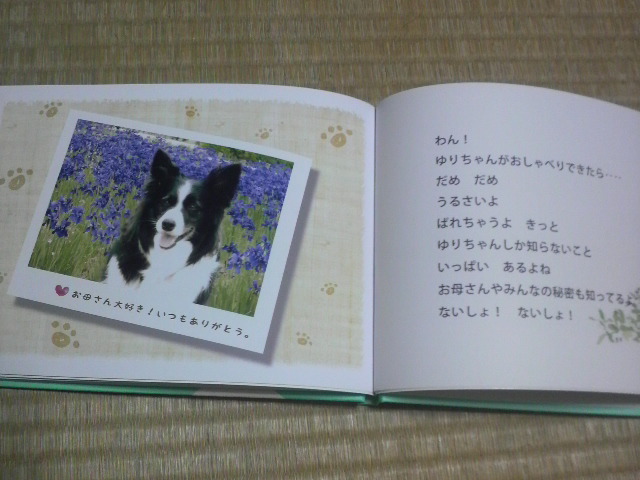 お母さん大好き!いつもありがとう。
わん!
ゆりちゃんがおしゃべりできたら‥‥
だめ　だめ
うるさいよ
ばれちゃうよ　きっと
ゆりちゃんしか知らないこと
いっぱい　あるよね
お母さんやみんなの秘密も知ってるよ
ないしょ!　ないしょ!